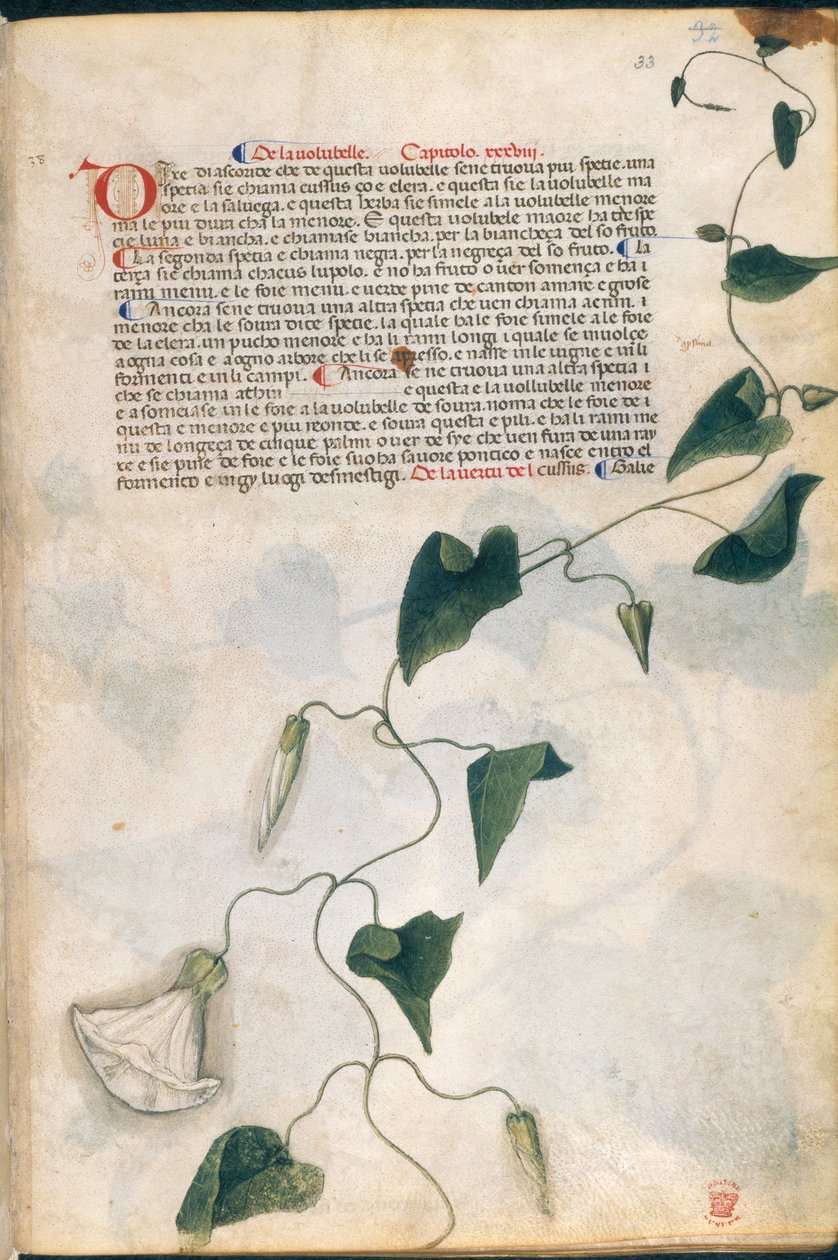 32
33
38
De la uolubelle. Capitolo. xxxviii.
Dixe diascoride che de questa uolubelle sene truoua piu spetie. una
spetia sie chiama cussus ço e elera. e questa sie la uolubelle ma
ore e la saluega. e questa herba sie simele a la uolubelle menore
ma le piu dura cha la menore. E questa uolubele maore ha tre spe
cie luna e biancha. e chiamase biancha. per la biancheça del so fruto.
La segonda spetia e chiama negra. per la negreça del so fruto. La
terça sie chiama chacus lupolo. e no ha fruto o uer somença e ha i
rami menu. e le foie menu. e uerde pine de canton amare e
Ancora sene truoua una altra spetia che uen chiama acnin. i
menore cha le soura dite spetie. la quale ha le foie simele a le foie
de la elera. un pucho menore e ha li rami longi i quale se inuolçe
a ogna cosa e a ogno arbore che li se apresso. e nasse in le uigne e in li
formenti e in li campi. Ancora se ne truoua una altra spetia i
che se chiama athin e questa e la uollubelle menore
e a someiase in le foie a la uolubelle de soura. noma che le foie de i
questa e menore e piu reonde. e soura questa e pili. e ha li rami me
nu de longeça de cinque palmi o uer de sye che uen fura de una ray
xe e sie pine de foie e le foie suo ha sauore pontico e nasce entro el
formento e in gy luogi desmestigi. De la uertu del cussus. Galie